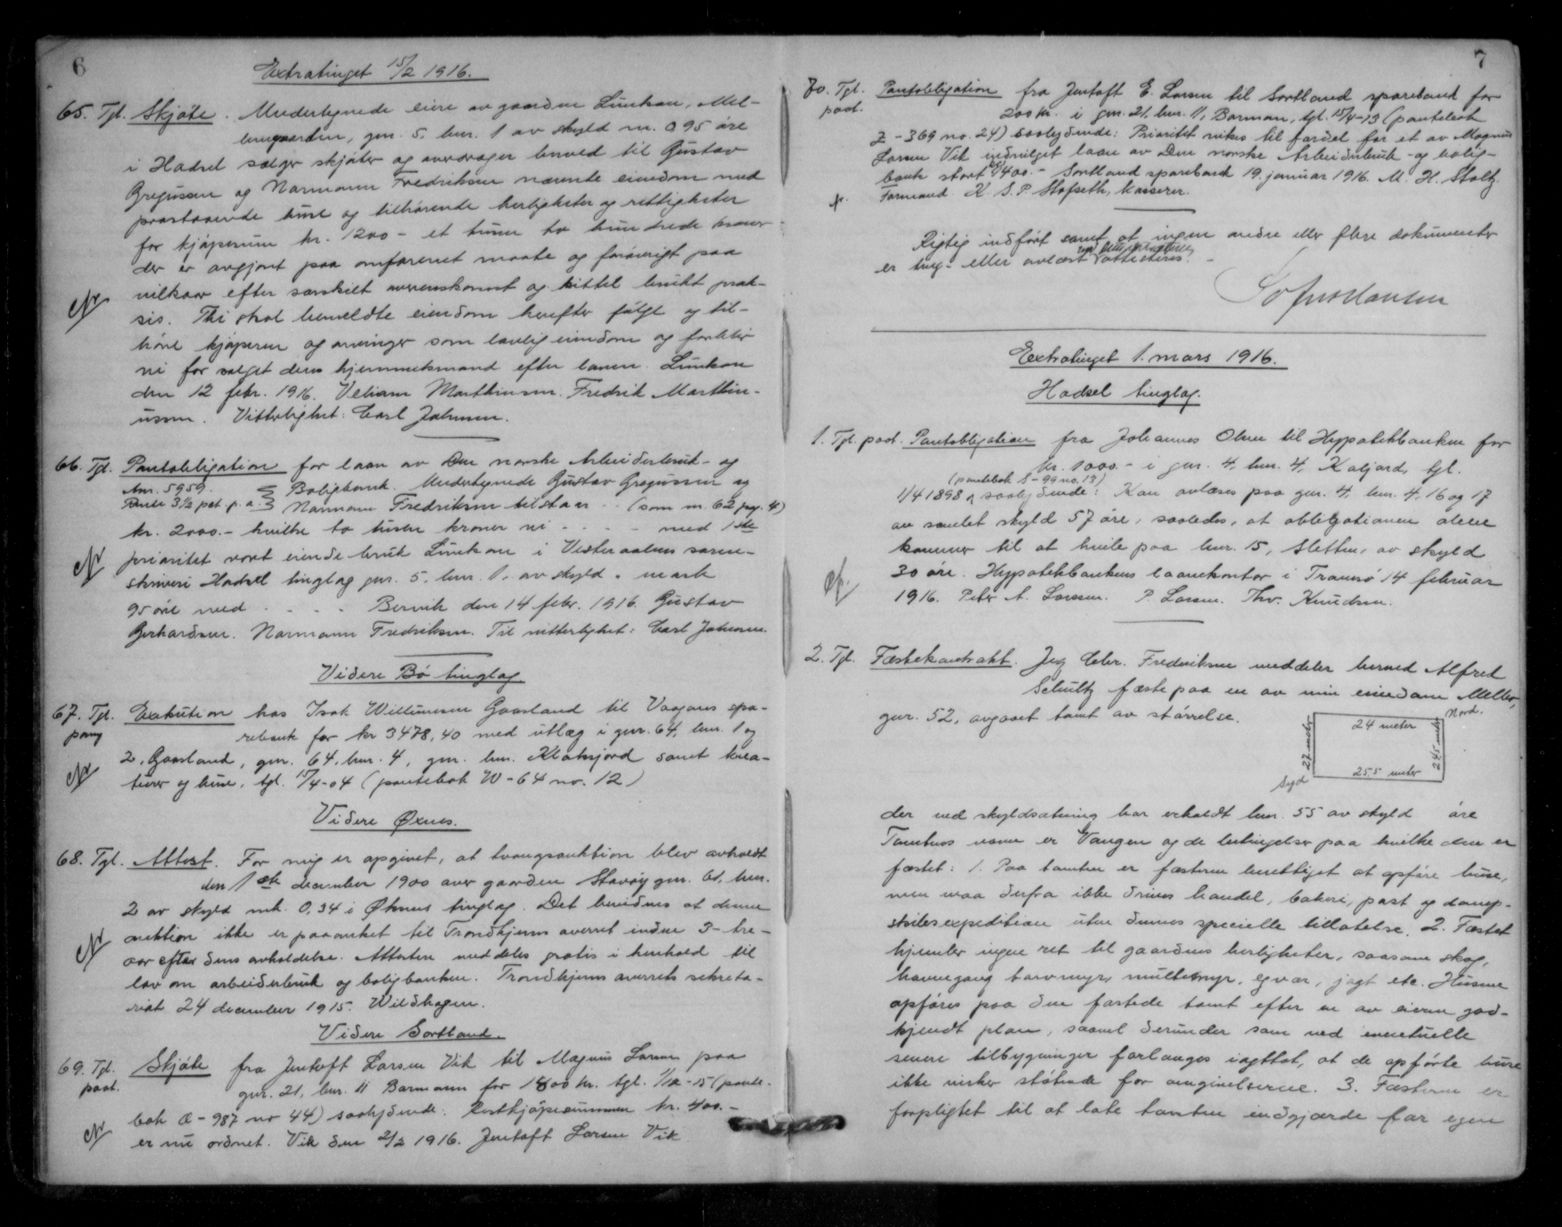 6
Extratinget 15/2 1916.
65. Tgl. Skjøte. Undertegnede eiere av gaarden Linkan, Mel-
lemgaarden, gnr. 5, bnr. 1 av skyld m. 0 95 øre
i Hadsel sælger skjøter og overdrager herved til Gustav
Gregusen og Normann Fredriksen nævnte eiendom med
paastaaende huse og tilhørende herligheter og rettigheter
for kjøpesum kr. 1200 - et tusen to hundrede kroner
der er avgjort paa omforenet maate og forøvrigt paa
vilkaar efter særskilt overenskomst og hittil brukt prak-
sis. Thi skal bemeldte eiendom herefter følge og til-
høre kjøperen og arvinger som lovlig eiendom og forblir
vi for salget deres hjemmelsmænd efter loven. Linkan
den 12 febr. 1916. Marthinusen. Fredrik Marthin-
ussen. Vitterlighet: Carl Johnsen.
66. Tgl. Pantobligation for laan av Den norske Arbeiderbruk- og
Anr. 5959. Boligbank. Undertegnede Gustav Gregussen og
Rente 3 1/2 pct p. a. Normann Fredriksen tilstaar - - (som nr. 62 pag. 4)
kr. 2000.- hvilke to tusen kroner vi - - - - med 1ste
prioritet vort eiende bruk Linkan i Vesteraalens soren-
skriveri Hadsel tinglag gnr. 5, bnr. 1, av skyld - mark
95 øre med - - - - Bervik den 14 febr. 1916. Gustav
Gerhardsen. Normann Fredriksen. Til vitterlighet: Carl Johnsen.
Videre Bø tinglag
67. Tgl. Exekution hos Isak Willumsen Gaasland til Vaagans spa-
rebank for kr 3478,40 med utlæg i gnr. 64, bnr. 1 og
2, Gaasland, gnr. 64, bnr. 4, gnr. bnr. Klaksjord samt krea-
turer og huse, tgl. 15/4-04 (pantebok W - 64 no. 12)
Videre Øxnes.
68. Tgl. Attest. For mig er opgivet, at tvangsauktion blev avholdt
den 1ste december 1900 over gaarden Stavøy gnr. 61, bnr.
2 av skyld mk. 0,34 i Øksnes tinglag. Det bevidnes at denne
auktion ikke er paaanket til Trondhjems overret inden 3- tre -
aar efter dens avholdelse. Attesten meddeles gratis i henhold til
lov om arbeiderbruk og boligbanken. Trondhjems overrets sekreta-
riat 24 december 1915. Wildhagen.
Videre Sortland.
69. Tgl. Skjøte fra Jentoft Larsen Vik til Magnus Larsen paa
paat. gnr. 21, bnr. 11 Barmann for 1800 kr. tgl. 1/12 - 15 (pante-
bok Æ - 987 no 44) saalydende: Restkjøpesummen kr. 400.-
er nu ordnet. Vik den 2/2 1916. Jentoft Larsen Vik
7
70. Tgl. Pantobligation fra Jentoft E. Larsen til Sortland sparebank for
paat. 200 kr. i gnr. 21, bnr. 11, Barman, tgl. 15/4-13 (pantebok
Z - 369 no. 24) saalydende: Prioritet vikes til fordel for et av Magnus
Larsen Vik indvilget laan av Den norske Arbeiderbruk - og bolig-
bank stort 1400. - Sortland sparebank 19 januar 1916. M. H. Stoltz
Formand K. S. P. Hofseth, kasserer.
Rigtig indført samt at ingen andre eller flere dokumenter
er ting- eller avlæst attesteres.
Extratinget 1. mars 1916.
Hadsel tinglag.
1. Tgl. paat. Pantobligation fra Johannes Olsen til Hypotekbanken for
kr. 1000.- i gnr. 4, bnr. 4, Kaljord, tgl.
(pantebok S - 99 no. 13)
1/4 1898 saalydende: Kan avlæses paa gnr. 4, bnr. 4, 16 og 17
av samlet skyld 57 øre, saaledes, at obligationen alene
kommer til at hvile paa bnr. 15, Sletten, av skyld
30 øre. Hypotekbankens laanekontor i Tromsø 14 februar
1916. Peter A. Larssen. P. Larsen. Thv. Knudsen.
2. Tgl. Fæstekontrakt. Jeg Chr. Fredriksen meddeler herved Alfred
Schultz fæste paa en av min eiendom Melbo,
gnr. 52, avgaaet tomt av størrelse.
Nord.
24 meter
27 meter
245 meter
255 meter
Syd
der ved skyldsætning har erholdt bnr. 55 av skyld øre
Tomtens navn er Vangen og de betingelser paa hvilke den er
fæstet: 1. Paa tomten er fæsteren berettiget at opføre huse,
men maa derfra ikke drives handel, bakeri, post og damp-
skibsexpedition uten dennes specielle tillatelse. 2. Fæstet
hjemler ingen ret til gaardens herligheter, saasom skog,
havnegang torvmyr, multemyr, egvær, jagt etc. Husene
opføres paa den fæstede tomt efter en av eieren god-
kjendt plan, saavel derunder som ved eventuelle
senere tilbygninger forlanges iagttat, at de opførte huse
ikke virker støtende for omgivelserne. 3. Fæsteren er
forpligtet til at late tomten indgjærde for egen